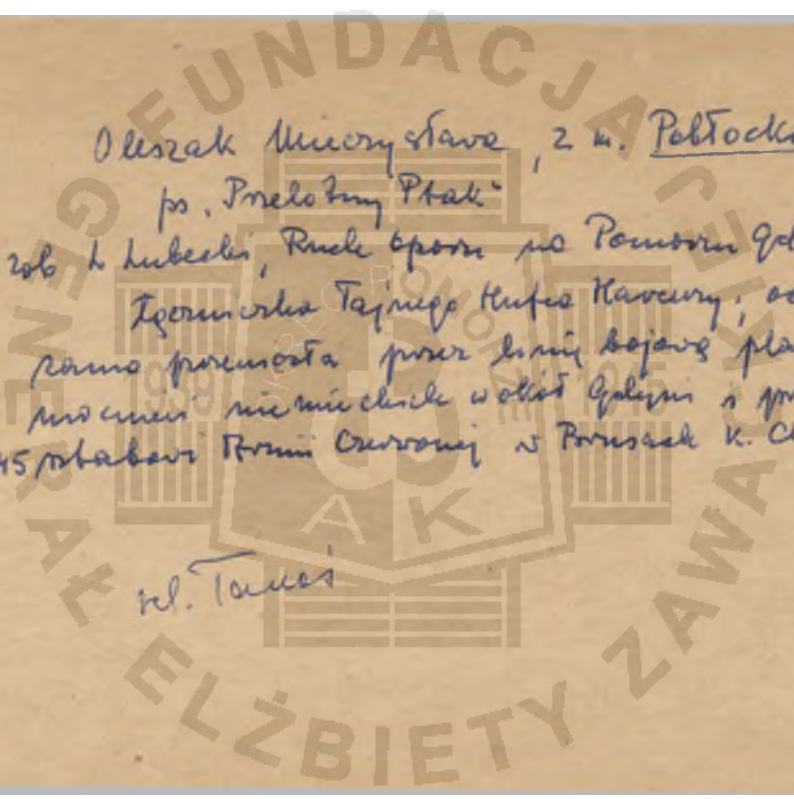 Oleszak Mieczysława, z m. Pobłocka
ps. "Przelotny Ptak"
zob L. Lubecki, Ruch oporu na Pomorzu Gd
Łączniczka Tajnego Hufca Harcerzy,
przeniosła przez linię bojową pla
niemieckich wokół Gdyni i
45 sztabowi Armii Czerwonej w Prusach k.
rel. Tomaś
FUNDACJA GENERAŁ ELŻBIETY ZAWACKIEJ
POMORZE
1939 1945
AK